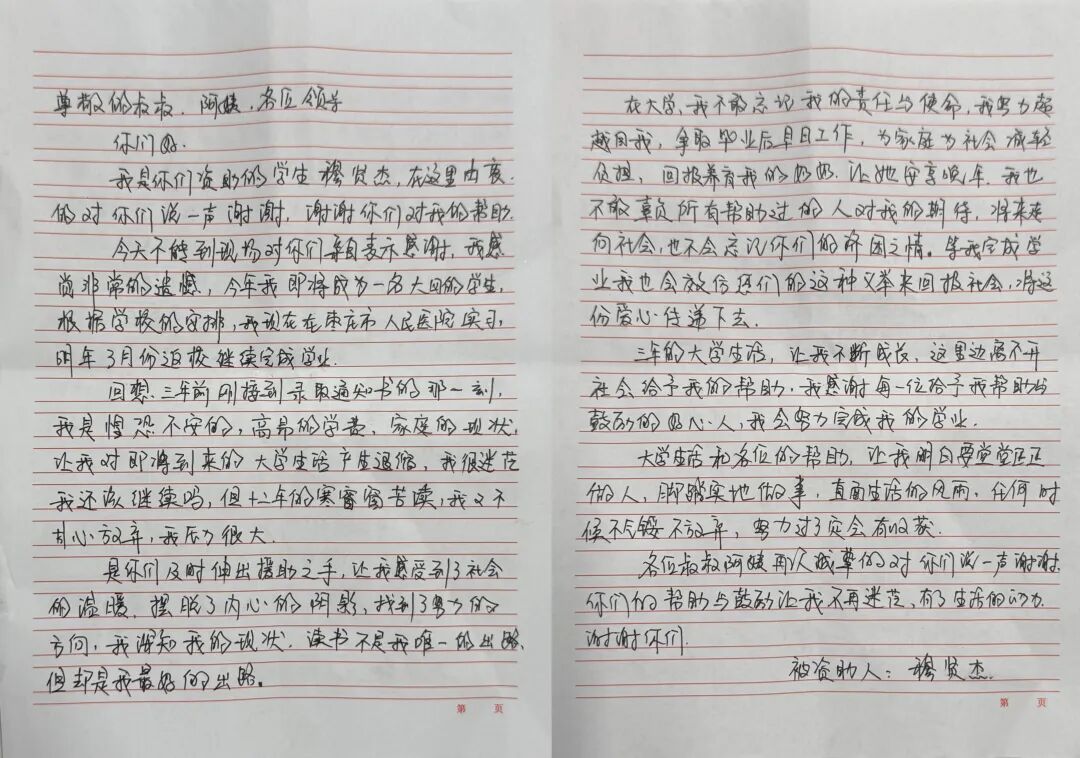 尊敬的叔叔、阿姨、各位领导
你们好.
我是你们资助的学生穆贤杰,在这里由衷
的对你们说一声谢谢,谢谢你们对我的帮助.
今天不能到现场对你们亲自表示感谢,我感
尚非常的遗憾,今年我即将成为一名大四的学生,
根据学校的安排,我现在在枣庄市人民医院实习,
明年3月份返校继续完成学业.
回想三年前刚接到录取通知书的那一刻,
我是惶恐不安的,高昂的学费、家庭的现状,
让我对即将到来的大学生活产生退缩,我很迷茫
我还该继续吗,但十二年的寒窗苦读,我又不
甘心放弃,我压力很大.
是你们及时伸出援助之手,让我感受到了社会
的温暖,摆脱了内心的阴影,找到了努力的
方向,我深知我的现状,读书不是我唯一的出路,
但却是我最好的出路。
第 页
在大学,我不敢忘记我的责任与使命,我努力超
越自我,争取毕业后早日工作,为家庭为社会减轻
负担,回报养育我的奶奶,让她安享晚年.我也
不敢辜负所有帮助过的人对我的期待,将来走
向社会,也不会忘记你们的解困之情。等我完成学
业我也会效仿您们的这种义举来回报社会,将这
份爱心传递下去.
三年的大学生活,让我不断成长,这里边离不开
社会给予我的帮助.我感谢每一位给予我帮助与
鼓励的好心人,我会努力完成我的学业.
大学生活和各位的帮助,让我明白要堂堂正正
做人,脚踏实地做事,直面生活的风雨,任何时
候不气馁不放弃,努力过了定会有收获.
各位叔叔阿姨再次诚挚的对你们说一声谢谢,
你们的帮助与鼓励让我不再迷茫,有了生活的动力.
谢谢你们.
被资助人:穆贤杰.
第 页